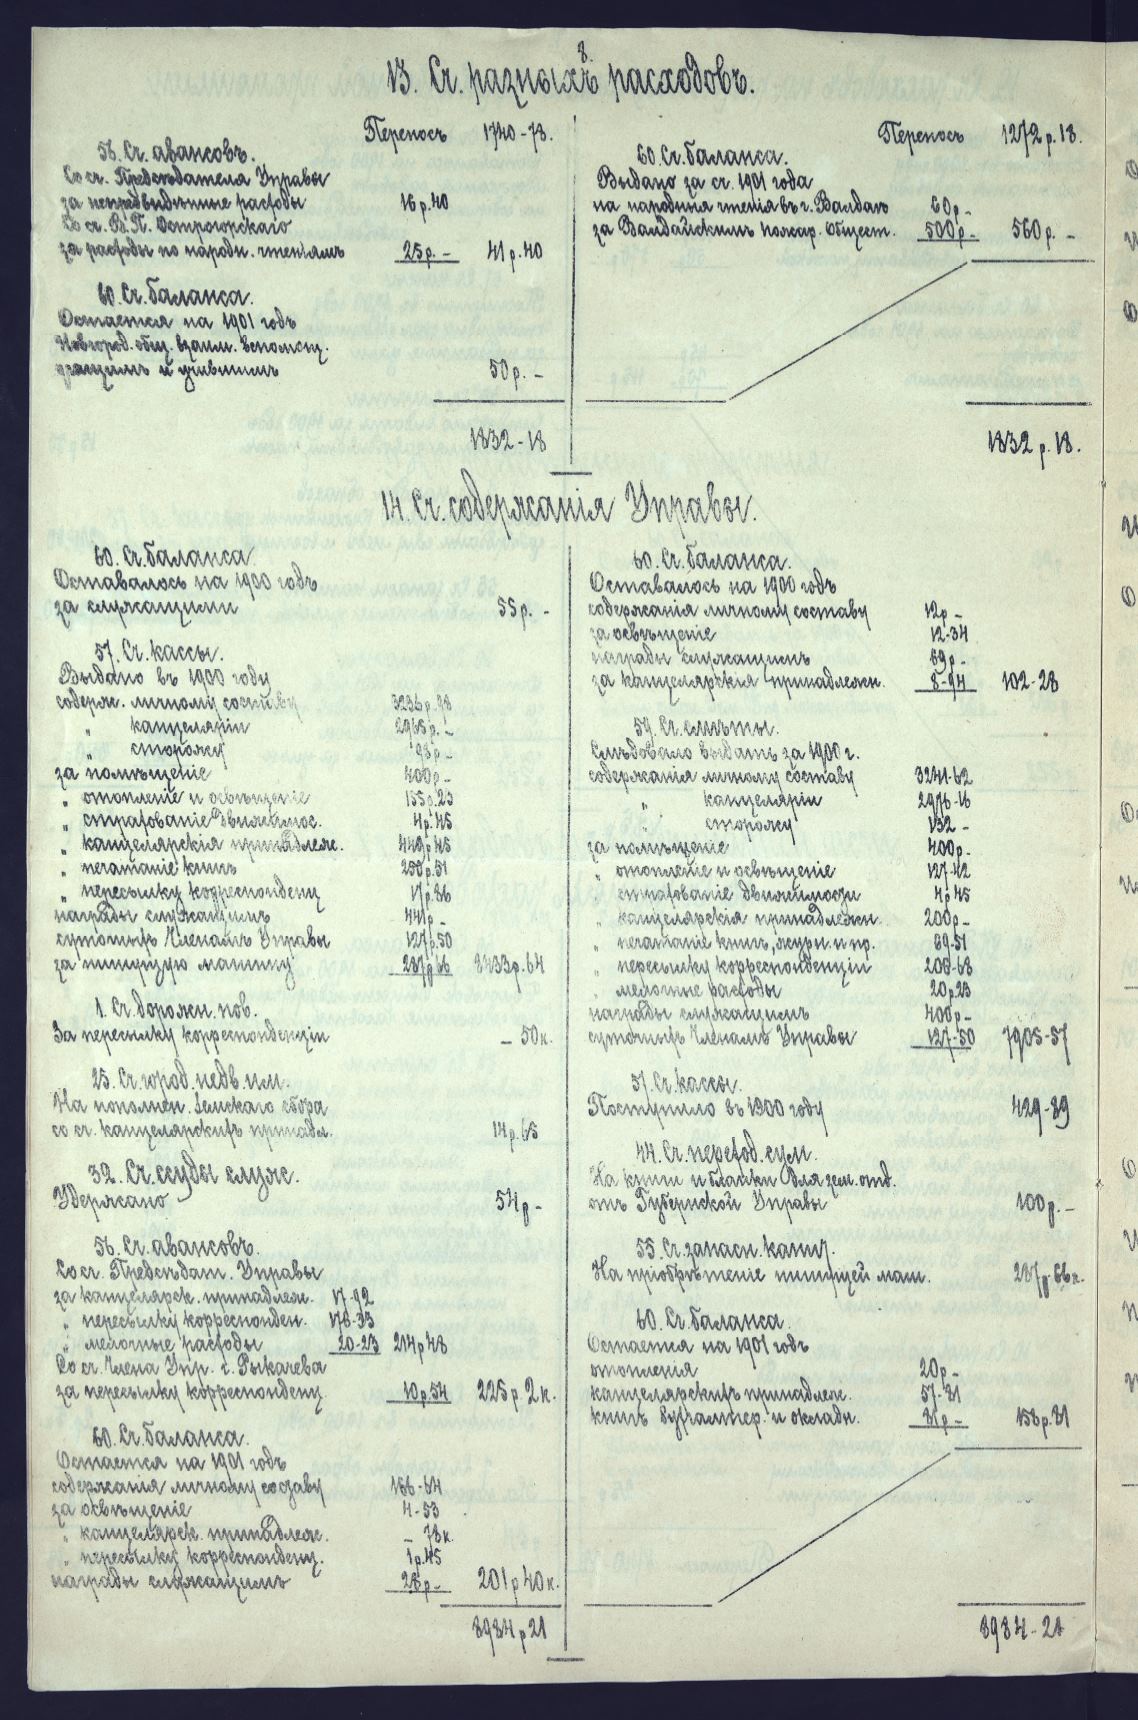 8
13. Сч. разныхъ расходовъ.
Переносъ 1740-78.
56. Сч. авансовъ.
Со сч. Предсѣдателя Управы
за непредвидѣнные расходы 16 р. 40
Со сч. В. П. Острогорскаго
за расходы по народн. чтеніямъ 25 р. – 41 р. 40
60. Сч. баланса.
Остается на 1901 годъ
Новгород. общ. взаим. вспомощ.
учащимъ и учившимъ 50 р. –
1832-18
Переносъ 1272 р. 18.
60. Сч. баланса.
Выдано за сч. 1901 года
на народныя чтенія въ г. Валдаѣ 60 р. –
за Валдайскимъ пожар. обществ. 500 р. – 560 р. –
1832 р. 18.
14. Сч. содержанія Управы.
60. Сч. баланса
Оставалось на 1900 годъ
за служащими 55 р. –
57. Сч. кассы.
Выдано въ 1900 году
содерж. личному составу 3236 р. 98
„ канцеляріи 2965 р. –
„ сторожу 98 р. –
за помѣщеніе 400 р. –
„ отопленіе и освѣщеніе 155 р. 23
„ страхованіе движимос. 4 р. 45
„ канцелярскія принадлеж. 449 р. 45
„ печатаніе книгъ 250 р. 51
„ пересылку корреспонденц 17 р. 86
награды служащимъ 441 р. –
суточныхъ Членамъ Управы 127 р. 50
за пишущую машину 287 р. 66 8433 р. 64
1. Сч. дорожн. пов.
За пересылку корреспонденціи – 50 к.
25. Сч. город. недв. им.
На пополнен. земскаго сбора
со сч. канцелярскихъ принадл. 14 р. 65
32. Сч. ссуды служ.
Удержано 54 р –
56. Сч. авансовъ.
Со сч. Предсѣдат. Управы
за канцелярск. принадлеж. 17-92
„ пересылку корреспонден. 176-33
„ мелочные расходы 20-23 214 р 48
Со сч. Члена Упр. г. Рыкачева
за пересылку корреспонденц. 10 р. 54 225 р. 2 к.
60. Сч. баланса.
Остается на 1901 годъ
содержанія личному составу 166-64
за освѣщеніе 4-53
„ канцелярск. принадлеж. – 78 к.
„ пересылку корреспонденц. 1 р. 45
награды служащимъ 28 р – 201 р 40 к.
8984 р 21
60. Сч. баланса.
Оставалось на 1900 годъ
содержанія личному составу 12 р –
за освѣщеніе 12-34
награды служащимъ 69 р –
за канцелярскія принадлежн. 8-94 102-28
59. Сч. смѣты.
Слѣдовало выдать за 1900 г.
содержанія личному составу 3241-62
„ канцеляріи 2976-16
„ сторожу 132 –
за помѣщеніе 400 р. –
„ отопленіе и освѣщеніе 127-42
„ страхованіе движимости 4 р 45
„ канцелярскія принадлежн. 200 р. –
„ печатаніе книг, журн. и пр. 69-51
„ пересылку корреспонденціи 206-68
„ мелочные расходы 20 р 23
награды служащимъ 400 р. –
суточныхъ Членамъ Управы 127-50 7905-57
57. Сч. кассы.
Поступило въ 1900 году 429-89
44. Сч. переход. сум.
На книги и бланки для зем. отд.
отъ Губернской Управы 100 р. –
55. Сч. запасн. капит.
На пріобрѣтеніе пишущей маш. 287 р. 66 к.
60. Сч. баланса.
Остается на 1901 годъ
отопленія 20 р. –
канцелярскихъ принадлеж. 57-81
книгъ бухгалтер. и окладн. 81 р – 158 р. 81
8984-21